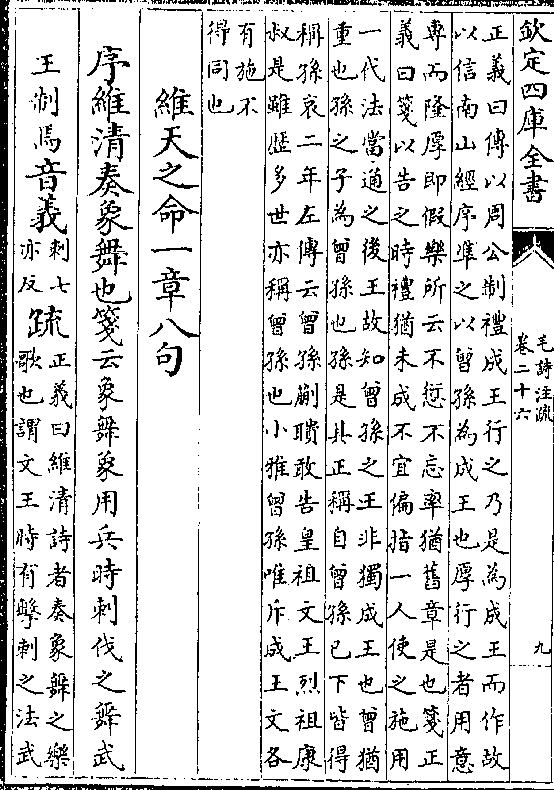 欽定四庫全書
毛詩注疏
卷二十六
九
正義曰傳以周公制禮成王行之乃是為成王而作故
以信南山經序準之以曽孫為成王也厚行之者用意
專而隆厚即假樂所云不愆不忘率猶舊章是也箋正
義曰箋以告之時禮猶未成不宜偏指一人使之施用
一代法當通之後王故知曽孫之王非獨成王也曽猶
重也孫之子為曽孫也孫是其正稱自曽孫已下皆得
稱孫哀二年左傳云曽孫蒯聵敢告皇祖文王烈祖康
叔是雖歴多世亦稱曽孫也小雅曽孫唯斥成王文各
有施不
得同也
維天之命一章八句
序維清奏象舞也箋云象舞象用兵時刺伐之舞武
王制焉音義
刺七
亦反
疏
正義曰維清詩者奏象舞之樂
歌也謂文王時有擊刺之法武